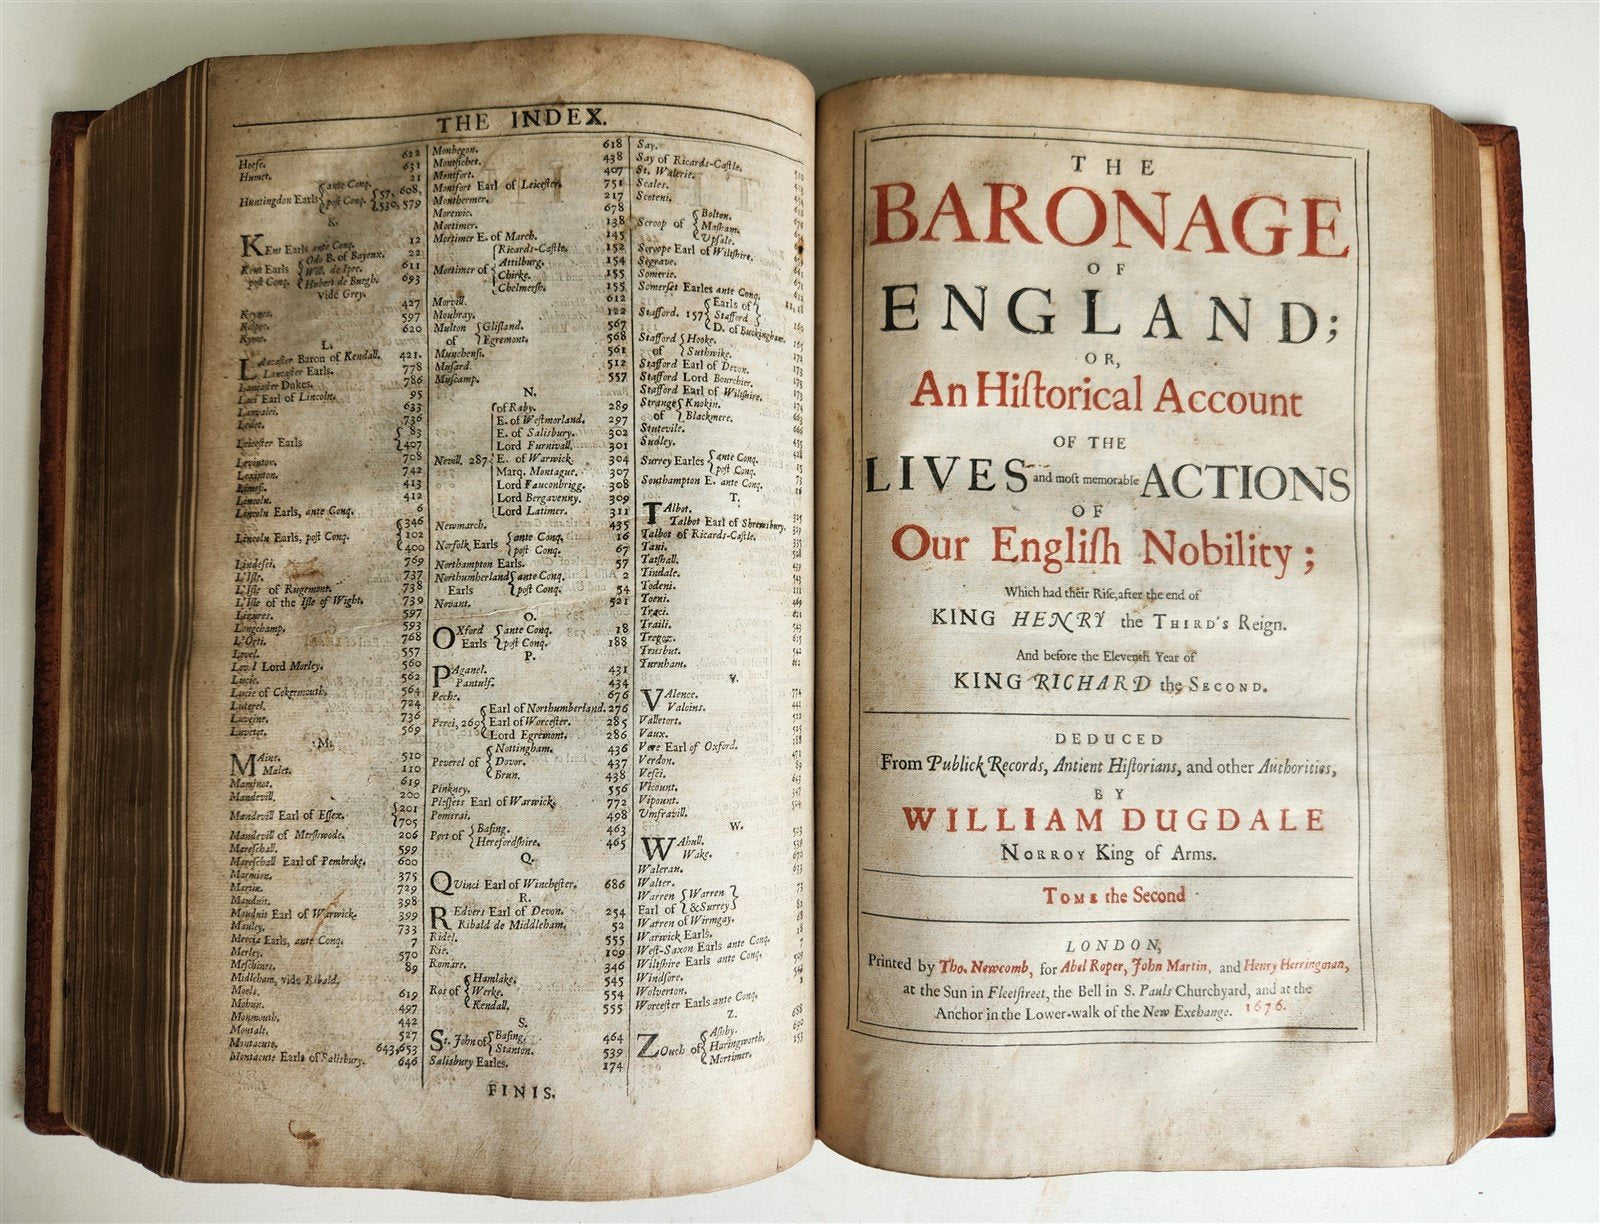 THE INDEX.
Hoese. 622
Humet. 631
21
Huntingdon Earls { ante Conq. post Conq. { 57, 608, 530, 579
K.
KEnt Earls ante Conq. 12
Kent Earls post Conq. { Odo B. of Bayenx. 22
Will. de Ipre. 611
Hubert de Burgh. 693
Vide Grey.
Keynes. 427
597
Kyme. 620
L.
LAncaster Baron of Kendall. 421.
Lancaster Earls. 778
Lancaster Dukes. 786
Laci Earl of Lincoln. 95
Lanvalei. 633
Ledet. 736
Leicester Earls { 83 407
Levinton. 708
Lexinton. 742
Limesi. 413
Lincoln. 412
Lincoln Earls, ante Conq. 6
Lincoln Earls, post Conq. { 346 102 400
Lindesei. 769
L'Isle. 737
L'Isle of Rugemont. 738
L'Isle of the Isle of Wight. 739
Lizures. 597
Longchamp. 593
L'Orti. 768
Lovel. 557
Lovel Lord Morley. 560
Lucie. 562
Lucie of Cokermouth. 564
Luterel. 724
Luveine. 736
Luvetot. 569
M.
MAine. 510
Malet. 110
Maminot. 619
Mandevill. 200
Mandevill Earl of Essex. { 201 705
Mandevill of Mershwode. 206
Mareschall. 599
Mareschall Earl of Pembroke. 600
Marmion. 375
Martin. 729
Mauduit. 398
Mauduit Earl of Warwick. 399
Mauley. 733
Mercia Earls, ante Conq. 7
Merley. 570
Meschines. 89
Midleham, vide Ribald.
Moels. 619
Mohun. 497
Monmouth. 442
Montalt. 527
Montacute. 643, 653
Montacute Earls of Salisbury. 646
Monbegon. 618
Montfichet. 438
Montfort. 407
Montfort Earl of Leicester. 751
Monthermer. 217
Morewic. 678
Mortimer. 138
Mortimer E. of March. 145
Mortimer of { Ricards-Castle. 152
Attilburg. 154
Chirke. 155
Chelmersh. 155
Morvill. 612
Moubray. 122
Multon of { Gilsland. 567
Egremont. 568
Munchensi. 561
Musard. 512
Muscamp. 557
N.
Nevill. 287. { of Raby. 289
E. of Westmorland. 297
E. of Salisbury. 302
Lord Furnivall. 301
E. of Warwick. 304
Marq. Montague. 307
Lord Fauconbrigg. 308
Lord Bergavenny. 309
Lord Latimer. 311
Newmarch. 435
Norfolk Earls { ante Conq. 16
post Conq. 67
Northampton Earls. 57
Northumberland Earls { ante Conq. 2
post Conq. 54
Novant. 521
O.
OXford Earls { ante Conq. 18
post Conq. 188
P.
PAganel. 431
Pantulf. 434
Peche. 676
Perci, 269 { Earl of Northumberland. 276
Earl of Worcester. 285
Lord Egremont. 286
Peverel of { Nottingham. 436
Dovor. 437
Brun. 438
Pinkney. 556
Plessets Earl of Warwick. 772
Pomerai. 498
Port of { Basing. 463
Herefordshire. 465
Q.
QVinci Earl of Winchester. 686
R.
REdvers Earl of Devon. 254
Ribald de Middleham. 52
Ridel. 555
Rie. 109
Romare. 346
Ros of { Hamlake. 545
Werke. 554
Kendall. 555
S.
St. John of { Basing. 464
Stanton. 539
Salisbury Earles. 174
Say.
Say of Ricards-Castle.
St. Walerie.
Scales.
Scoteni.
Scroop of { Bolton.
Masham.
Upsale.
Scroope Earl of Wiltshire.
Segrave.
Somerie.
Somerset Earles ante Conq.
Stafford. 157 { Earls of Stafford
D. of Buckingham.
Stafford of { Hooke.
Suthwike.
Stafford Earl of Devon.
Stafford Lord Bourchier.
Stafford Earl of Wiltshire.
Strange of { Knokin.
Blackmere.
Stutevile.
Sudley.
Surrey Earles { ante Conq.
post Conq.
Southampton E. ante Conq.
T.
TAlbot.
Talbot Earl of Shrewsbury.
Talbot of Ricards-Castle.
Tani.
Tatshall.
Tindale.
Todeni.
Toeni.
Traci.
Traili.
Tregoz.
Trusbut.
Turnham.
V.
VAlence.
Valoins.
Valletort.
Vaux.
Vere Earl of Oxford.
Verdon.
Vesci.
Vicount.
Vipount.
Umfravill.
W.
WAhull.
Wake.
Waleran.
Walter.
Warren Earl of { Warren & Surrey }
Warren of Wirmgay.
Warwick Earls.
West-Saxon Earls ante Conq.
Wiltshire Earls ante Conq.
Windsore.
Wolverton.
Worcester Earls ante Conq.
Z.
ZOuch of { Ashby.
Haringworth.
Mortimer.
FINIS.
THE
BARONAGE
OF
ENGLAND;
OR,
An Hiſtorical Account
OF THE
LIVES and moſt memorable ACTIONS
OF
Our Engliſh Nobility;
Which had their Riſe, after the end of
KING HENRY the THIRD'S Reign.
And before the Eleventh Year of
KING RICHARD the SECOND.
DEDUCED
From Publick Records, Antient Hiſtorians, and other Authorities,
BY
WILLIAM DUGDALE
NORROY King of Arms.
TOME the Second
LONDON,
Printed by Tho. Newcomb, for Abel Roper, John Martin, and Henry Herringman,
at the Sun in Fleetſtreet, the Bell in S. Pauls Churchyard, and at the
Anchor in the Lower-walk of the New Exchange. 1676.